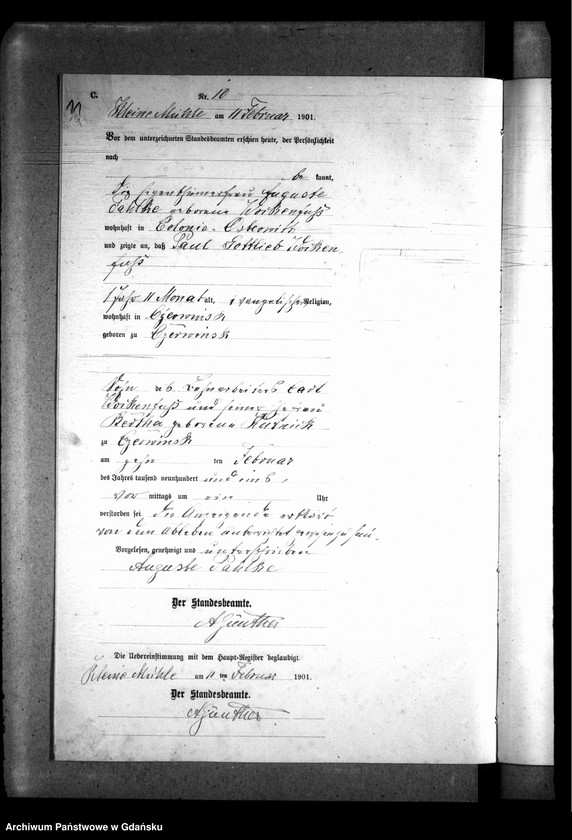 C.
Nr. 10
Kleine Mühle am 11 Februar 1901.
Vor dem unterzeichneten Standesbeamten erschien heute, der Persönlichkeit
nach
be kannt,
die Eigenthümerfrau Auguste
Pahlke geborene Woikenfuß
wohnhaft in Colonie-Ostrowin
und zeigte an, daß Paul Gottlieb Woiken-
fuß
1 Jahr 11 Monat alt, evangelischer Religion,
wohnhaft in Czerwinsk
geboren zu Czerwinsk
Sohn des Carl
Woikenfuß und seiner Ehefrau
Bertha geborene
zu Czerwinsk
am zehn ten Februar
des Jahres tausend neunhundert und eins,
vor mittags um ein Uhr
verstorben sei die Anzeigende erklärt
von dem Ableben unterrichtet
Vorgelesen, genehmigt und unterschrieben
Auguste Pahlke
Der Standesbeamte.
AGünther
Die Uebereinstimmung mit dem Haupt-Register beglaubigt.
Kleine Mühle am 11 ten Februar 1901.
Der Standesbeamte.
AGünther
Archiwum Państwowe w Gdańsku